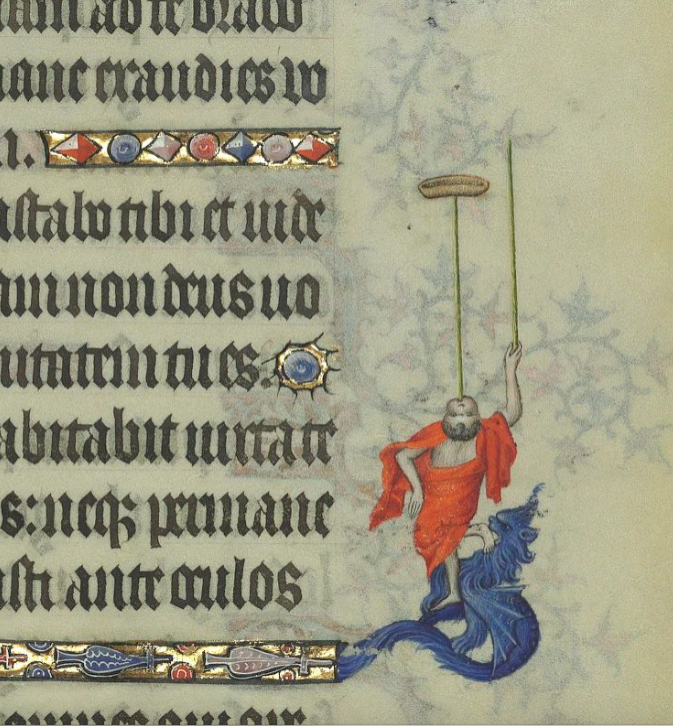 ad te orabo
mane exaudies uo
.i.
astabo tibi et uide
non deus uo
tu es.
abitabit iuxta te
s: neq; permane
sti ante oculos